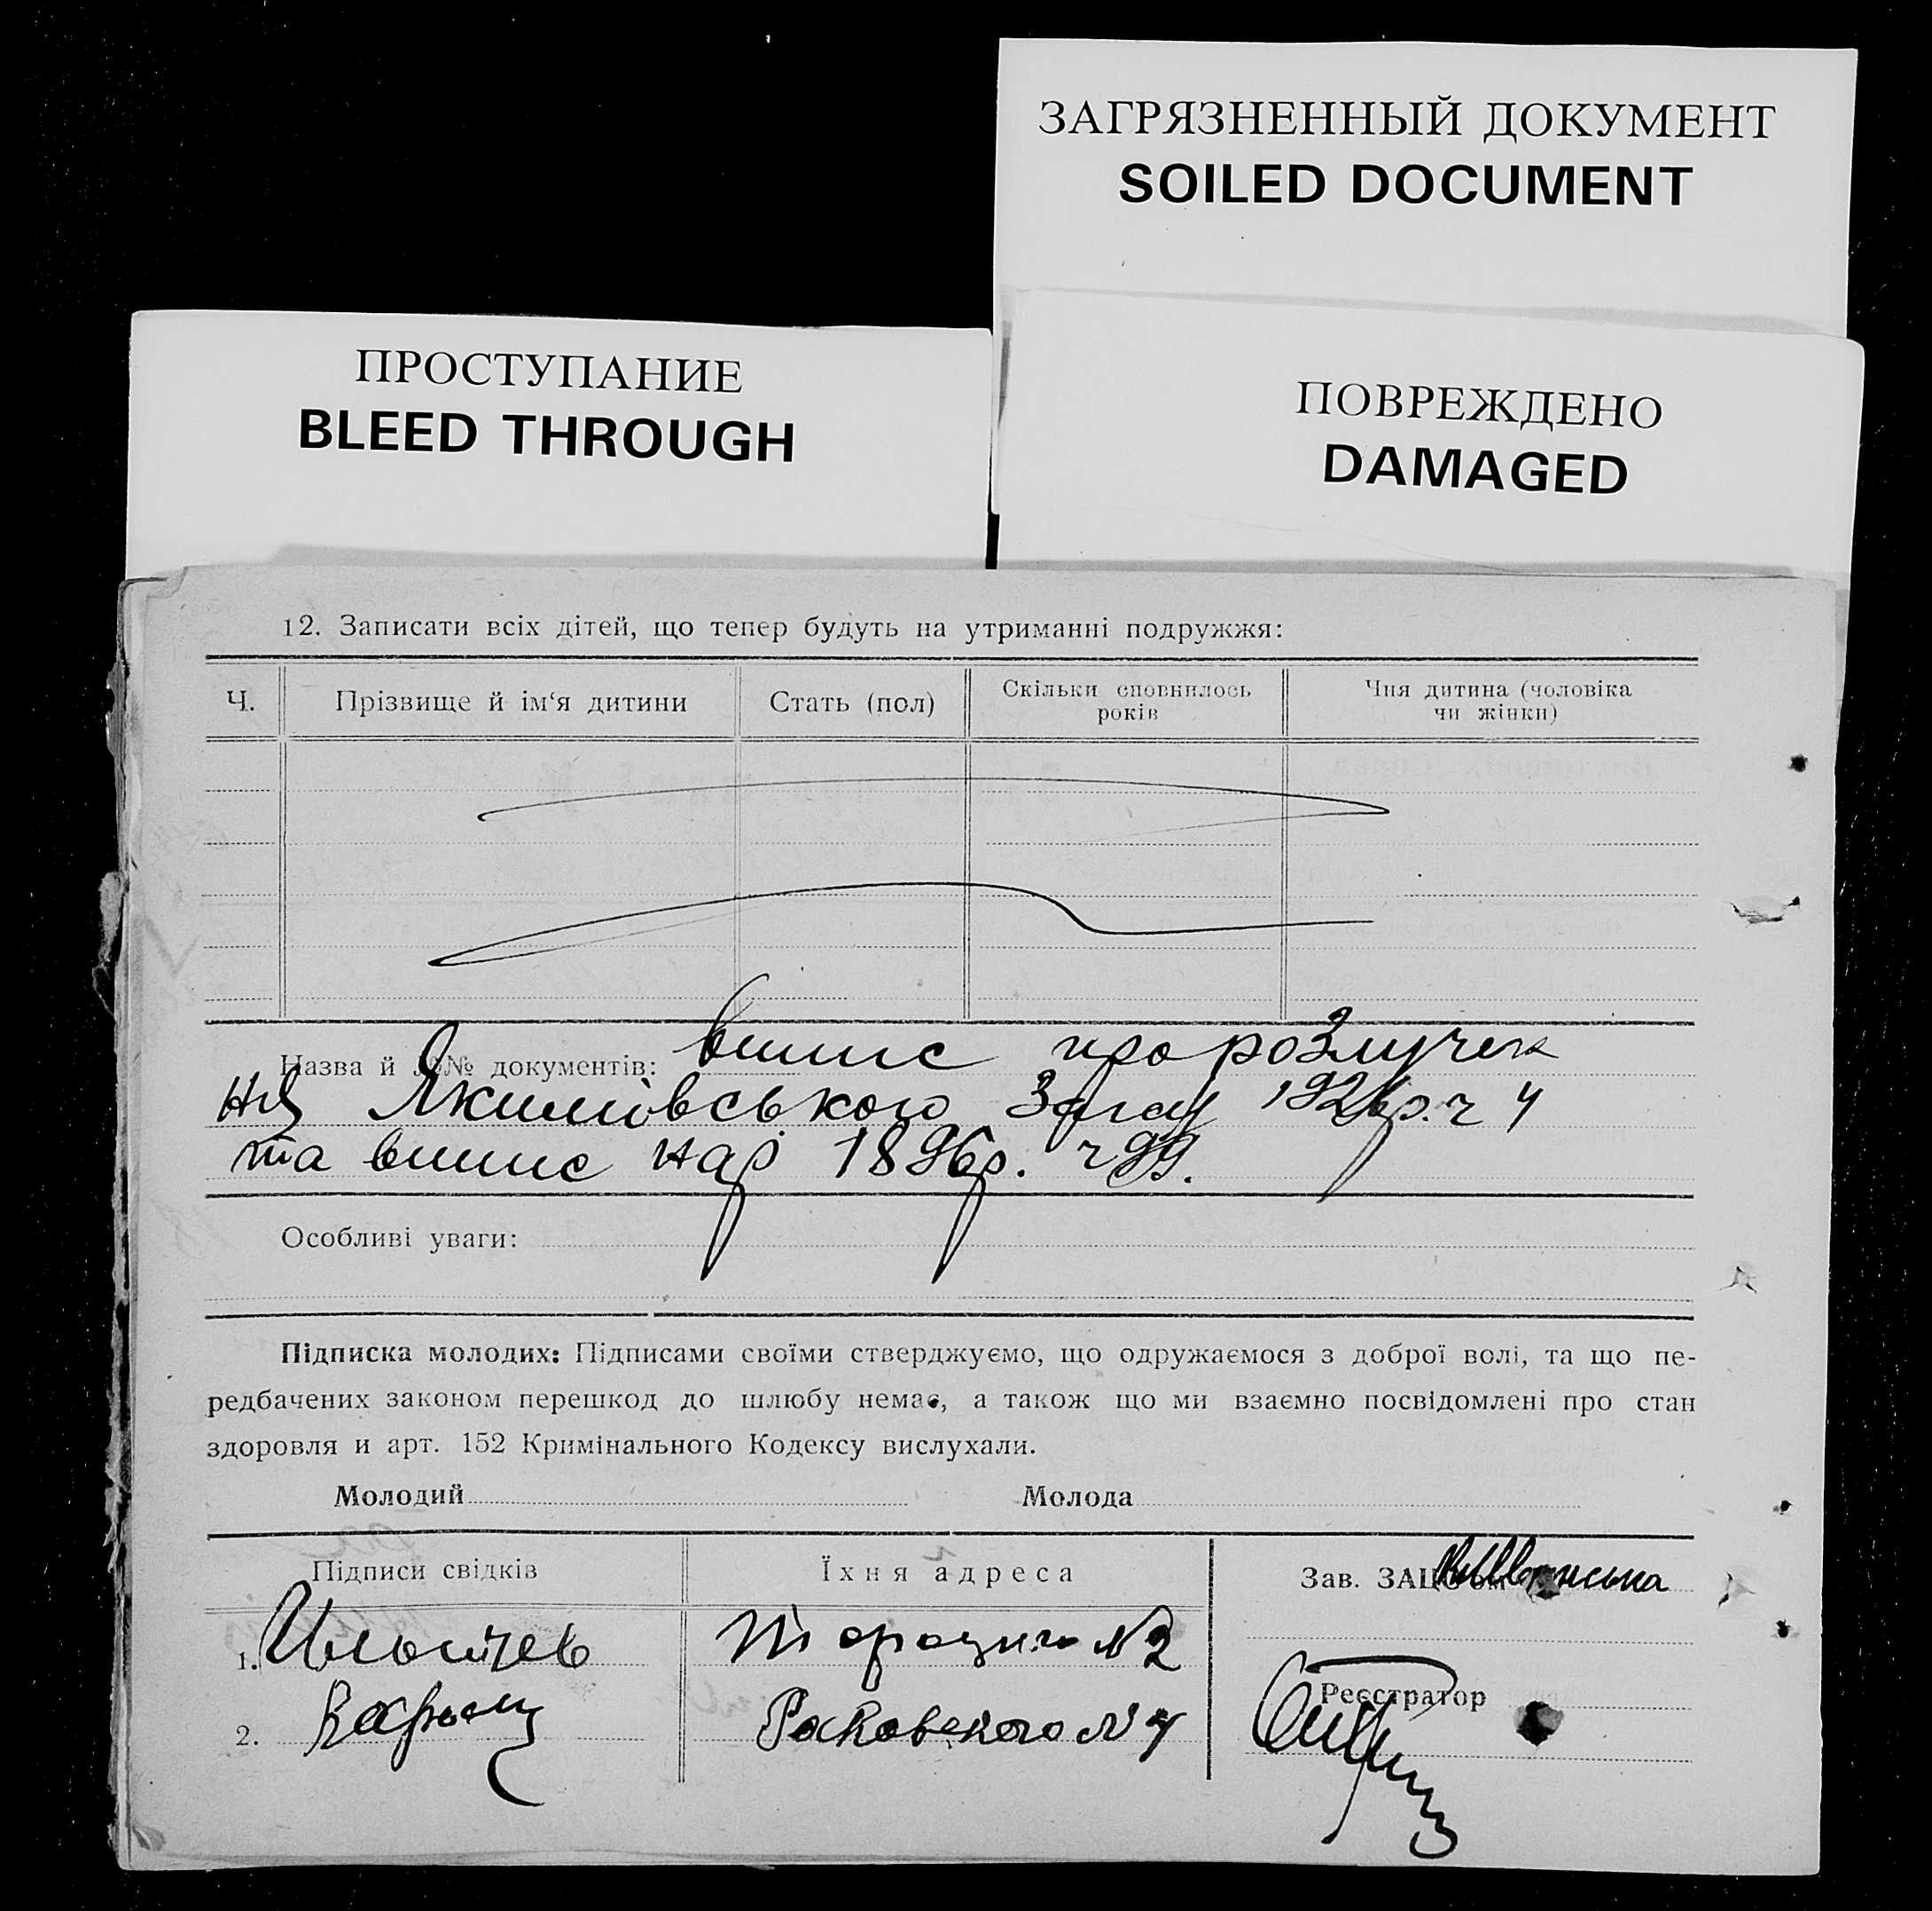 ЗАГРЯЗНЕННЫЙ ДОКУМЕНТ
SOILED DOCUMENT
ПРОСТУПАНИЕ
BLEED THROUGH
ПОВРЕЖДЕНО
DAMAGED
12. Записати всіх дітей, що тепер будуть на утриманні подружжя:
Ч. Прізвище й ім‘я дитини Стать (пол) Скільки сповнилось років Чия дитина (чоловіка чи жінки)
Назва й №№ документів: випис про розлучен
ня Якимівського Загсу 192 р. ч 4
та випис нар 1896р. ч 99.
Особливі уваги:
Підписка молодих: Підписами своїми стверджуємо, що одружаємося з доброї волі, та що пе-
редбачених законом перешкод до шлюбу немає, а також що ми взаємно посвідомлені про стан
здоровля и арт. 152 Кримінального Кодексу вислухали.
Молодий Молода
Підписи свідків Їхня адреса Зав. ЗАЦС‘ом
1. №2
Реєстратор
2. Раковского №